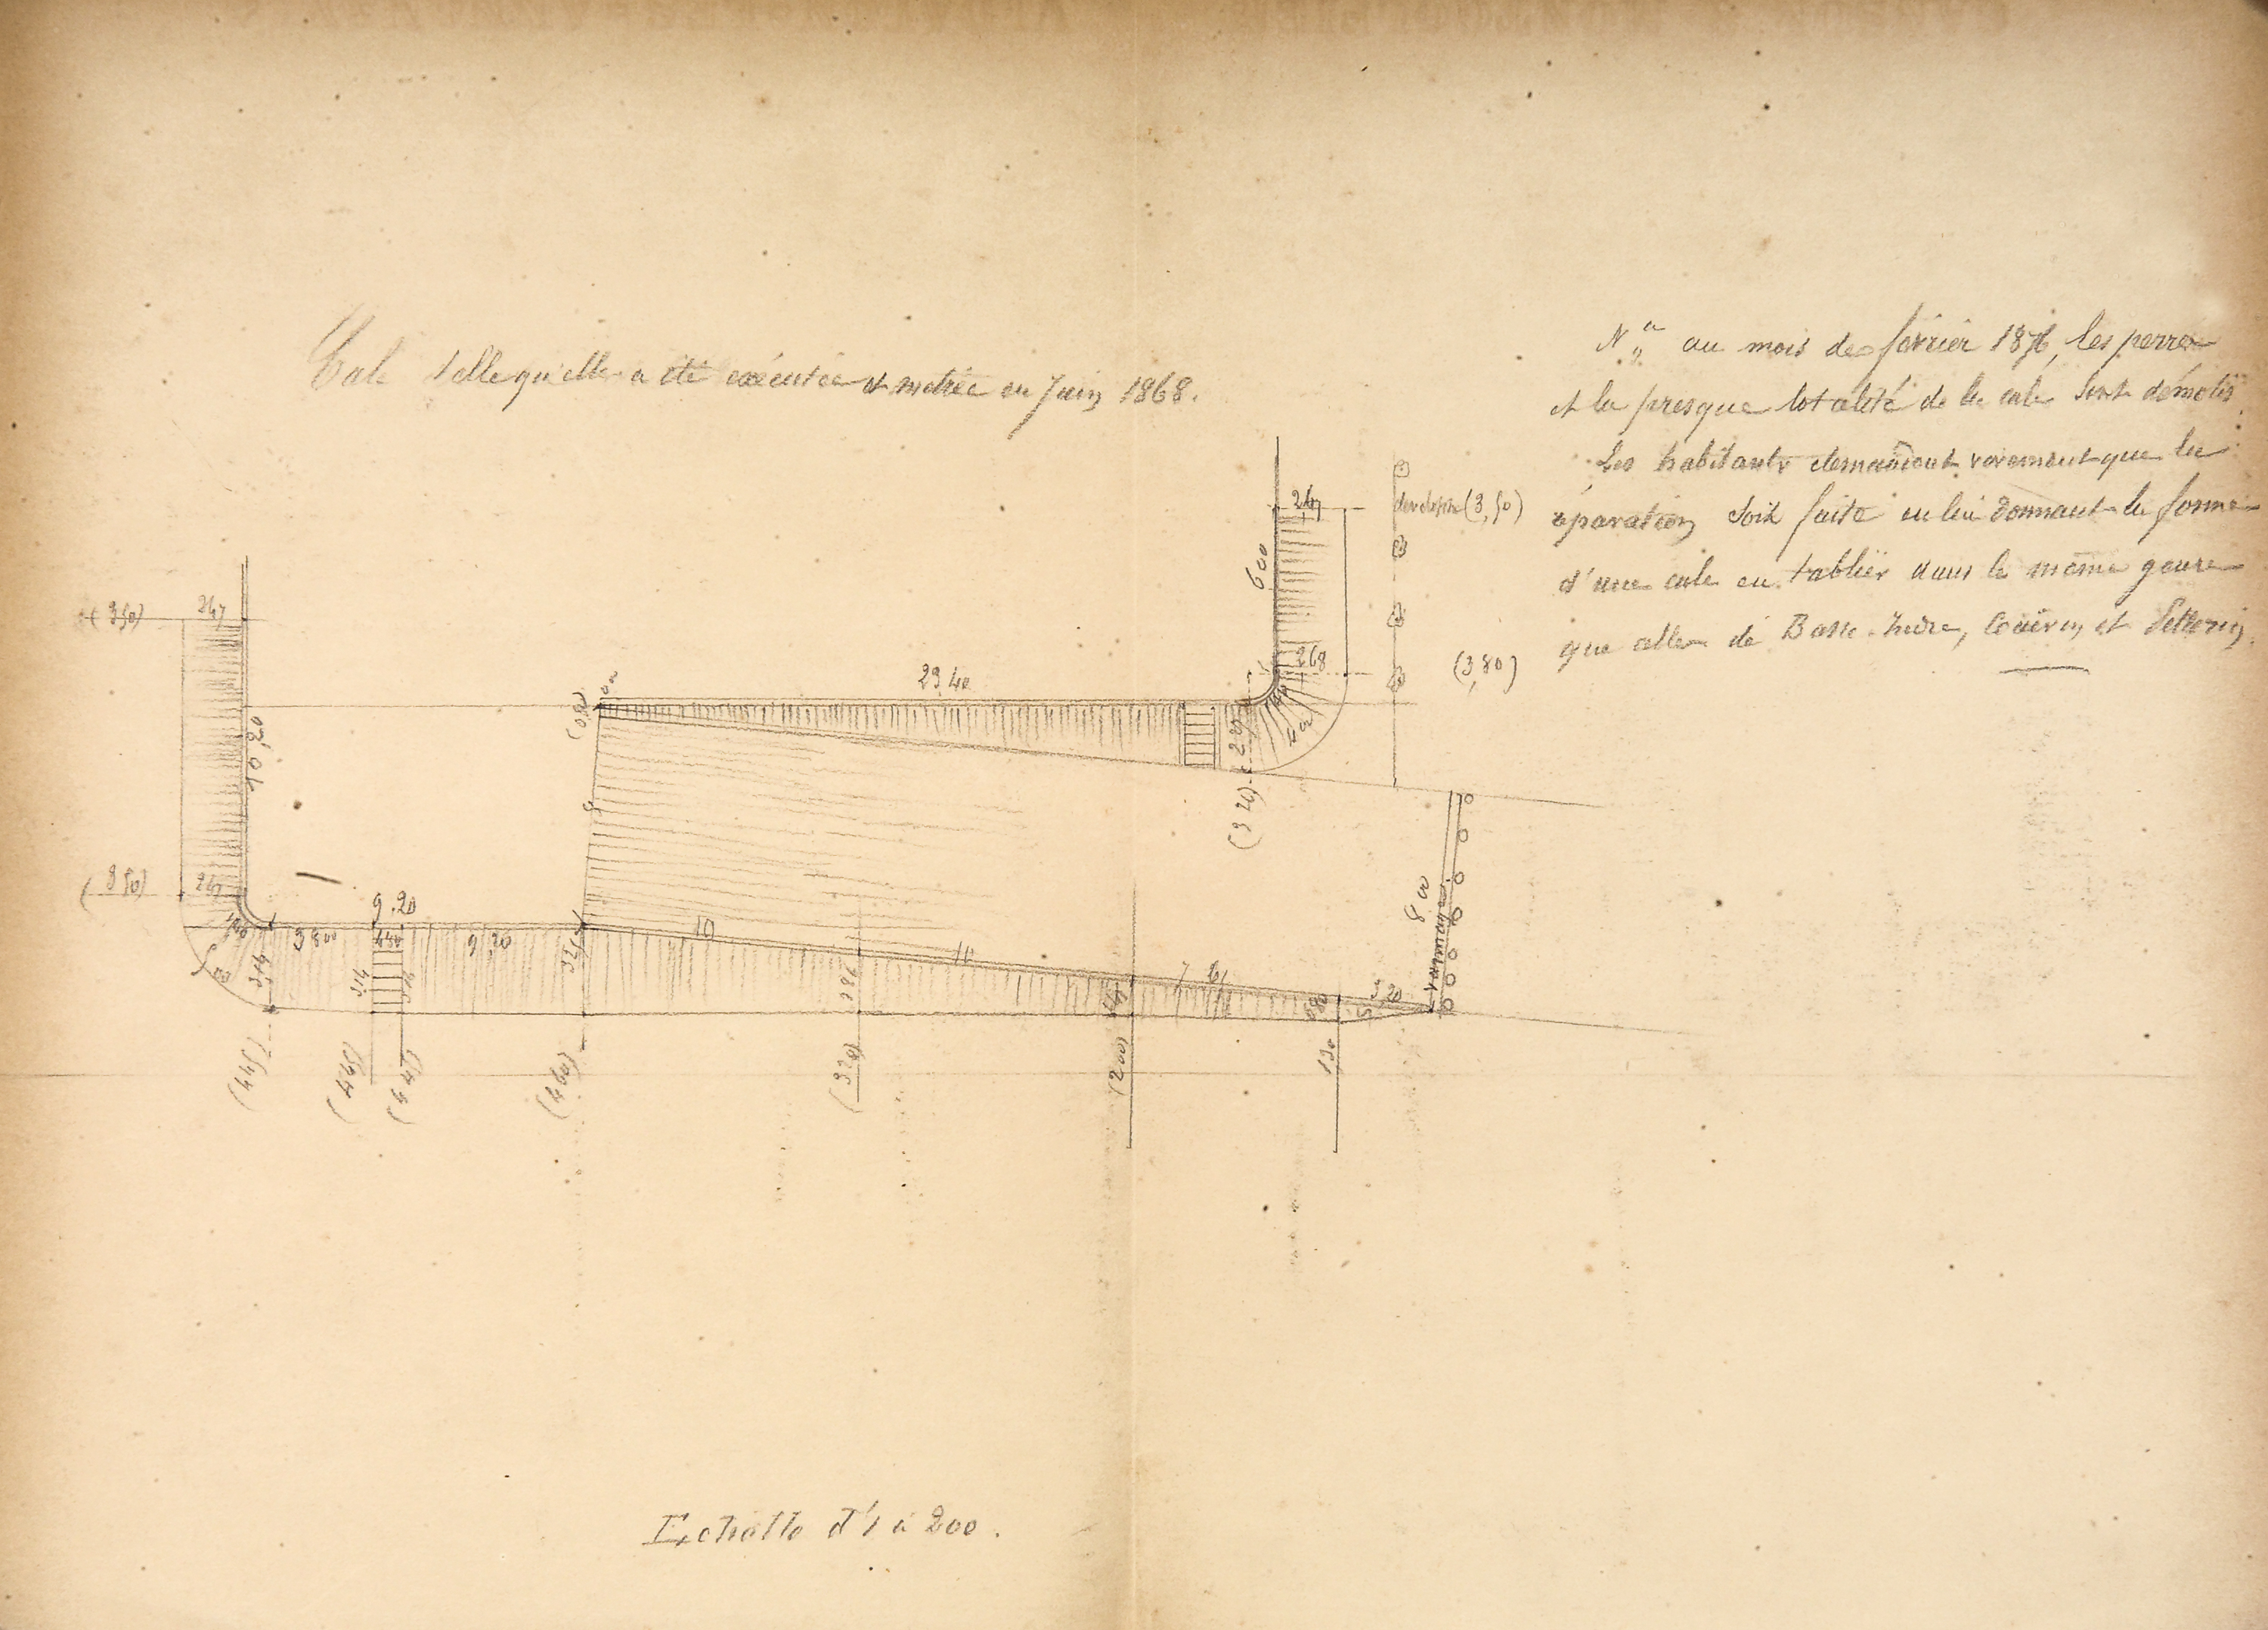 Cale telle qu'elle a été exécutée et métrée en Juin 1868.
Nta au mois de février 1876, les perrés
et la presque totalité de la cale sont démolis
Les habitants demandent vivement que la
réparation soit faite en lui donnant la forme
d'une cale en tablier dans le même genre
que celles de Basse-Indre, Couëron et Pellerin.
247
developpé (3,50)
600
(3,50) 247
268
(3,80)
29 40
(0,80)
10,20
220
(3 20)
8
(3 50) 247
9.20
8 00
3 80
9,20
10
11
7
5,20
314
314
286
(445)
(445)
(445)
(460)
(320)
(200)
130
Echelle d'1 à 200.